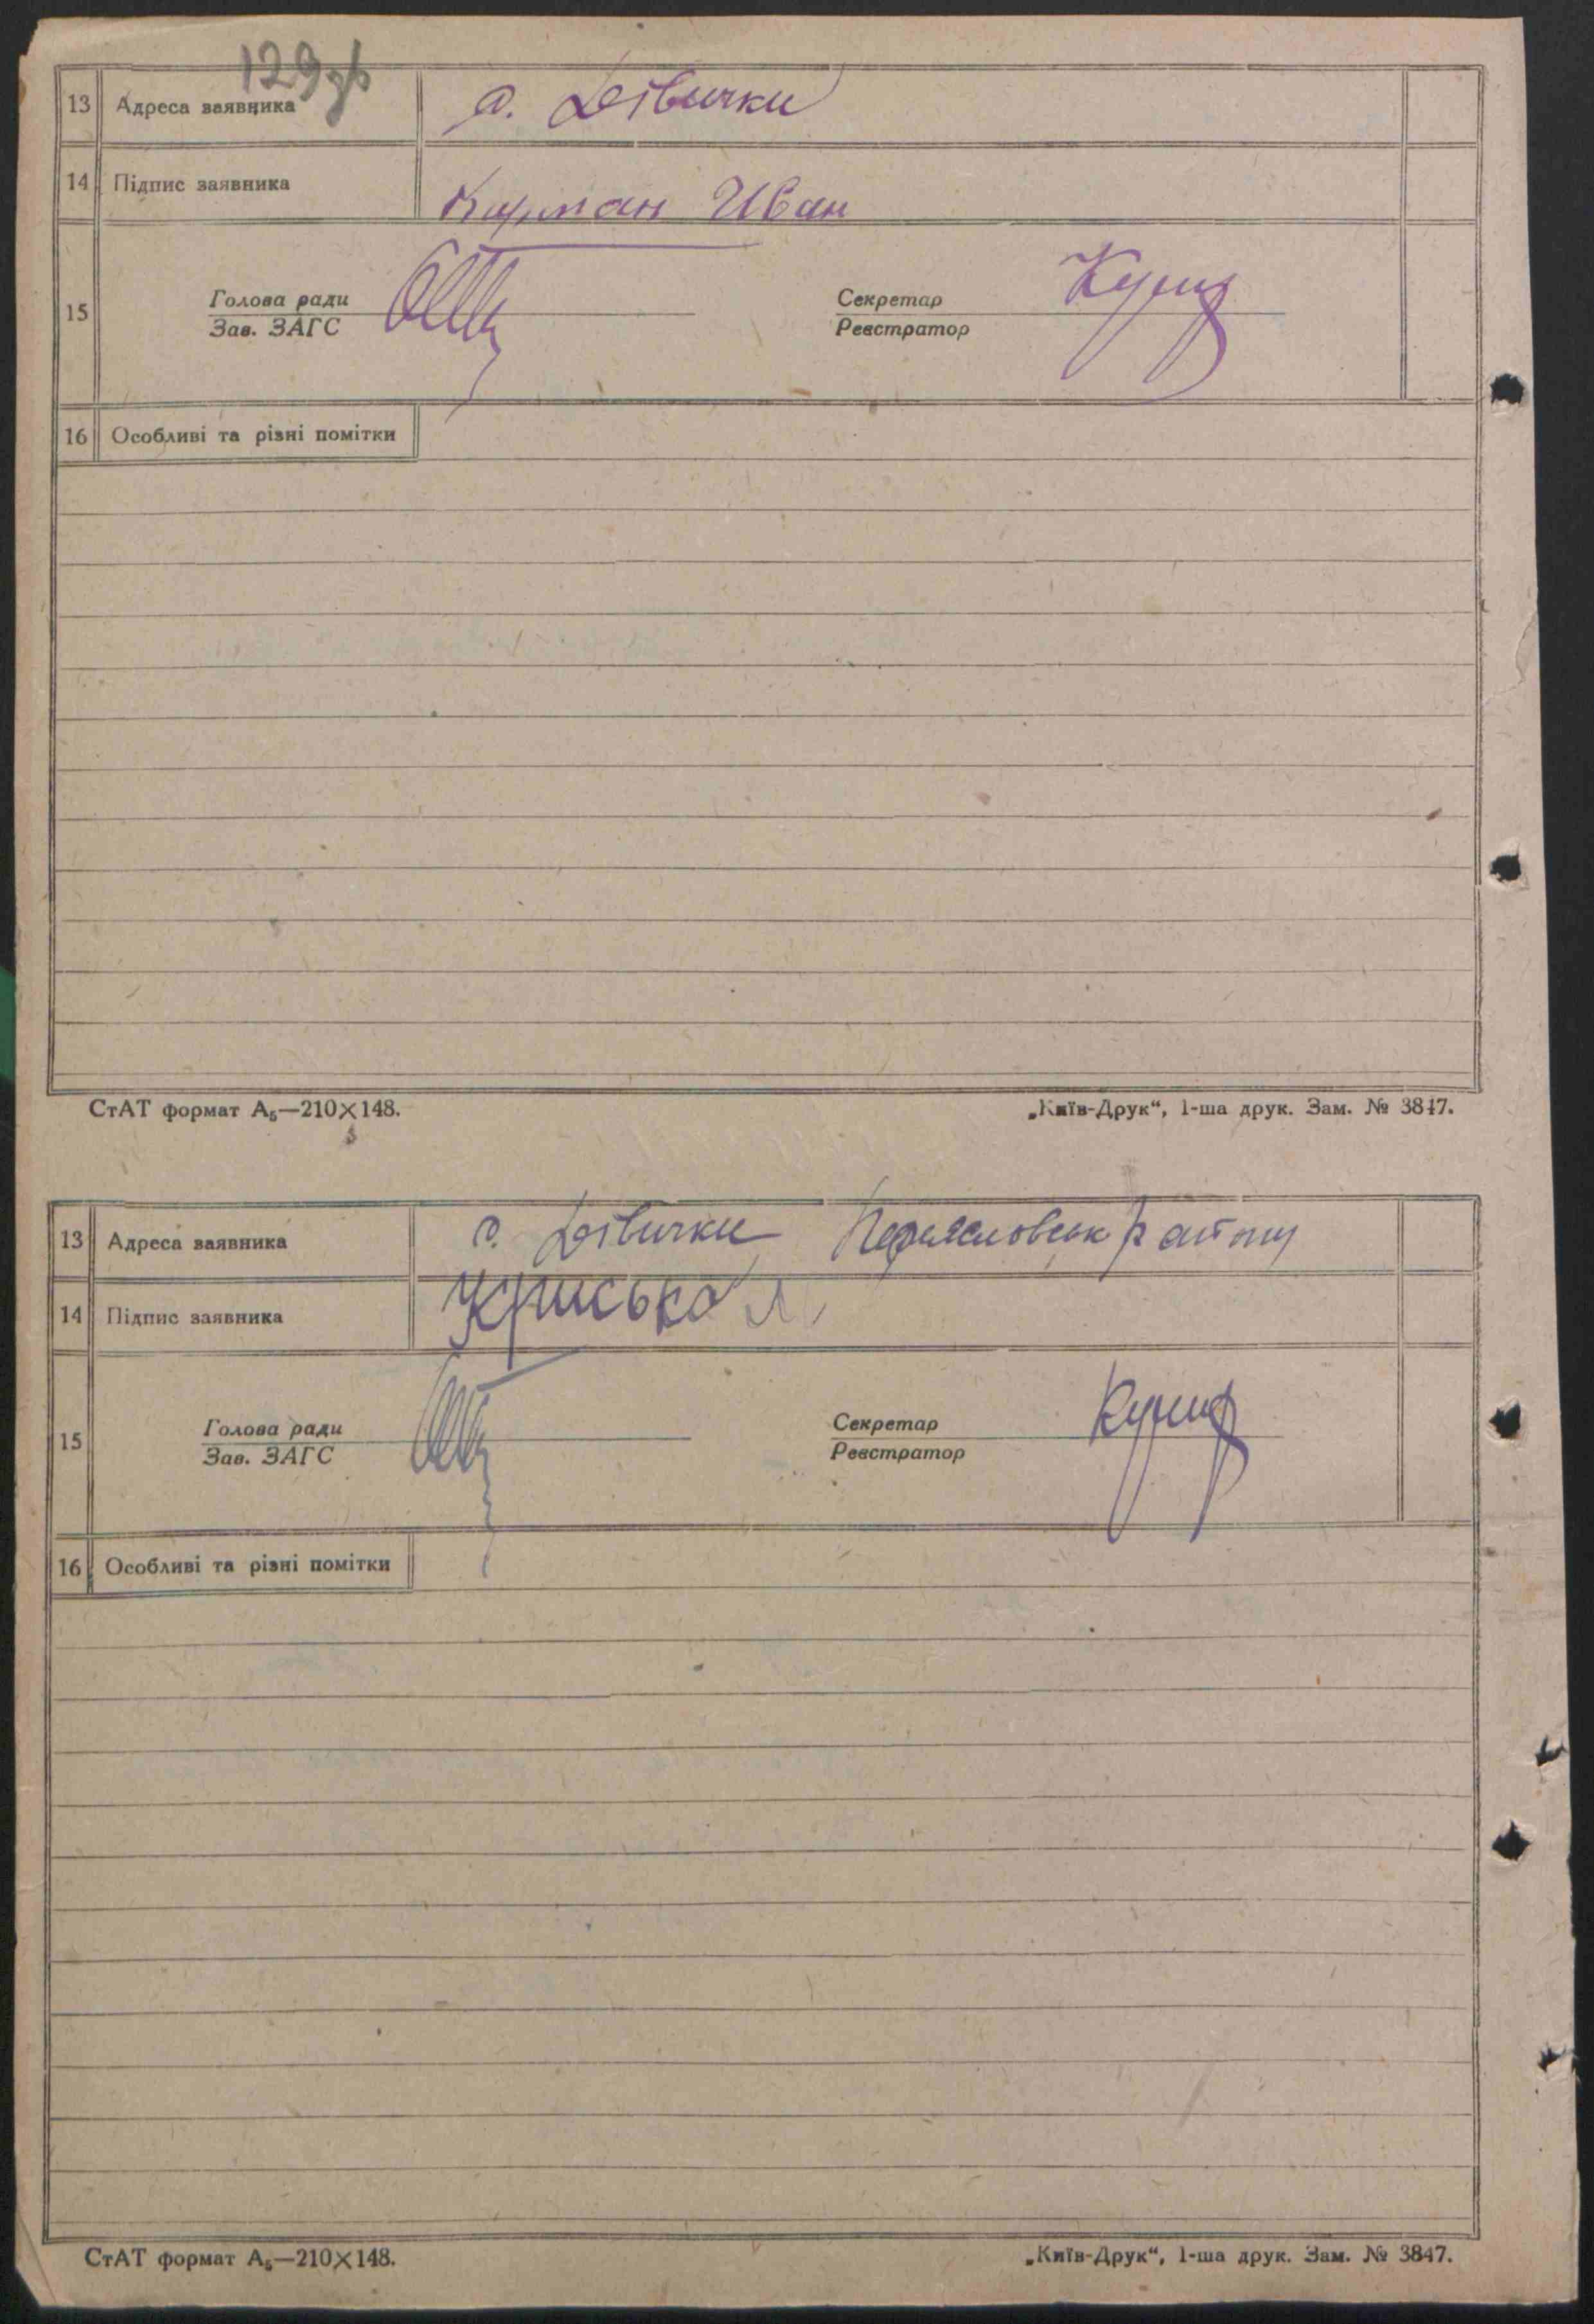 129зв
13 Адреса заявника с. Дівички
14 Підпис заявника Иван
15 Голова ради Секретар
Зав. ЗАГС Реєстратор
16 Особливі та різні помітки
СтАТ формат А₅—210×148. „Київ-Друк“, 1-ша друк. Зам. № 3847.
13 Адреса заявника с. Дівички Переяславськ району
14 Підпис заявника
15 Голова ради Секретар
Зав. ЗАГС Реєстратор
16 Особливі та різні помітки
СтАТ формат А₅—210×148. „Київ-Друк“, 1-ша друк. Зам. № 3847.